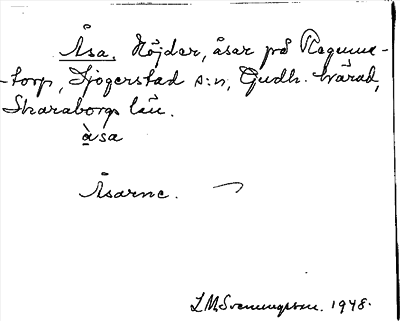 Åsa, Höjder, åsar på Ragnne-
-torp, Sjogerstad s:n, Gudh. härad,
Skaraborgs län.
àsa
Åsarne.
L M Svenungsson. 1948.